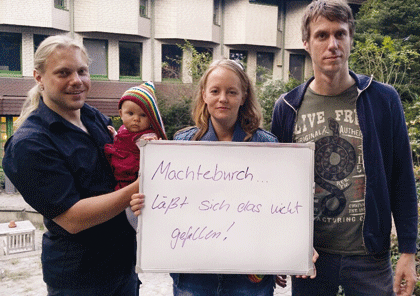 Machteburch...
läßt sich das nicht
gefallen!
LIVE FREE
ORIGINAL